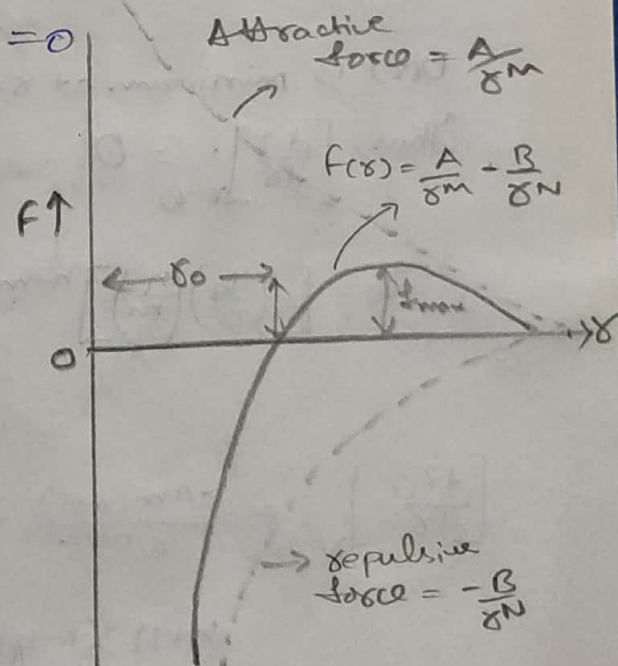 =0
Attractive
force = A/rM
f(r) = A/rM - B/rN
F↑
← r0 →
fmax
0
→r
→ repulsive
force = -B/rN